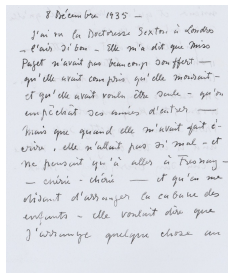 8 Décembre 1935 –
J'ai vu la Doctoresse Sexton à Londres
– l'air si bon – Elle m'a dit que Miss
Paget n'avait pas beaucoup souffert –
qu'elle avait compris qu'elle mourait –
et qu'elle avait voulu être seule – qu'on
empêchât ses amies d'entrer –
Mais que quand elle m'avait fait é-
crire, elle n'allait pas si mal – et
ne pensait qu'à aller à Fresnay –
– chérie – chérie – et qu'en me
disant d'arranger la cabane des
enfants – elle voulait dire que
j'arrange quelque chose au